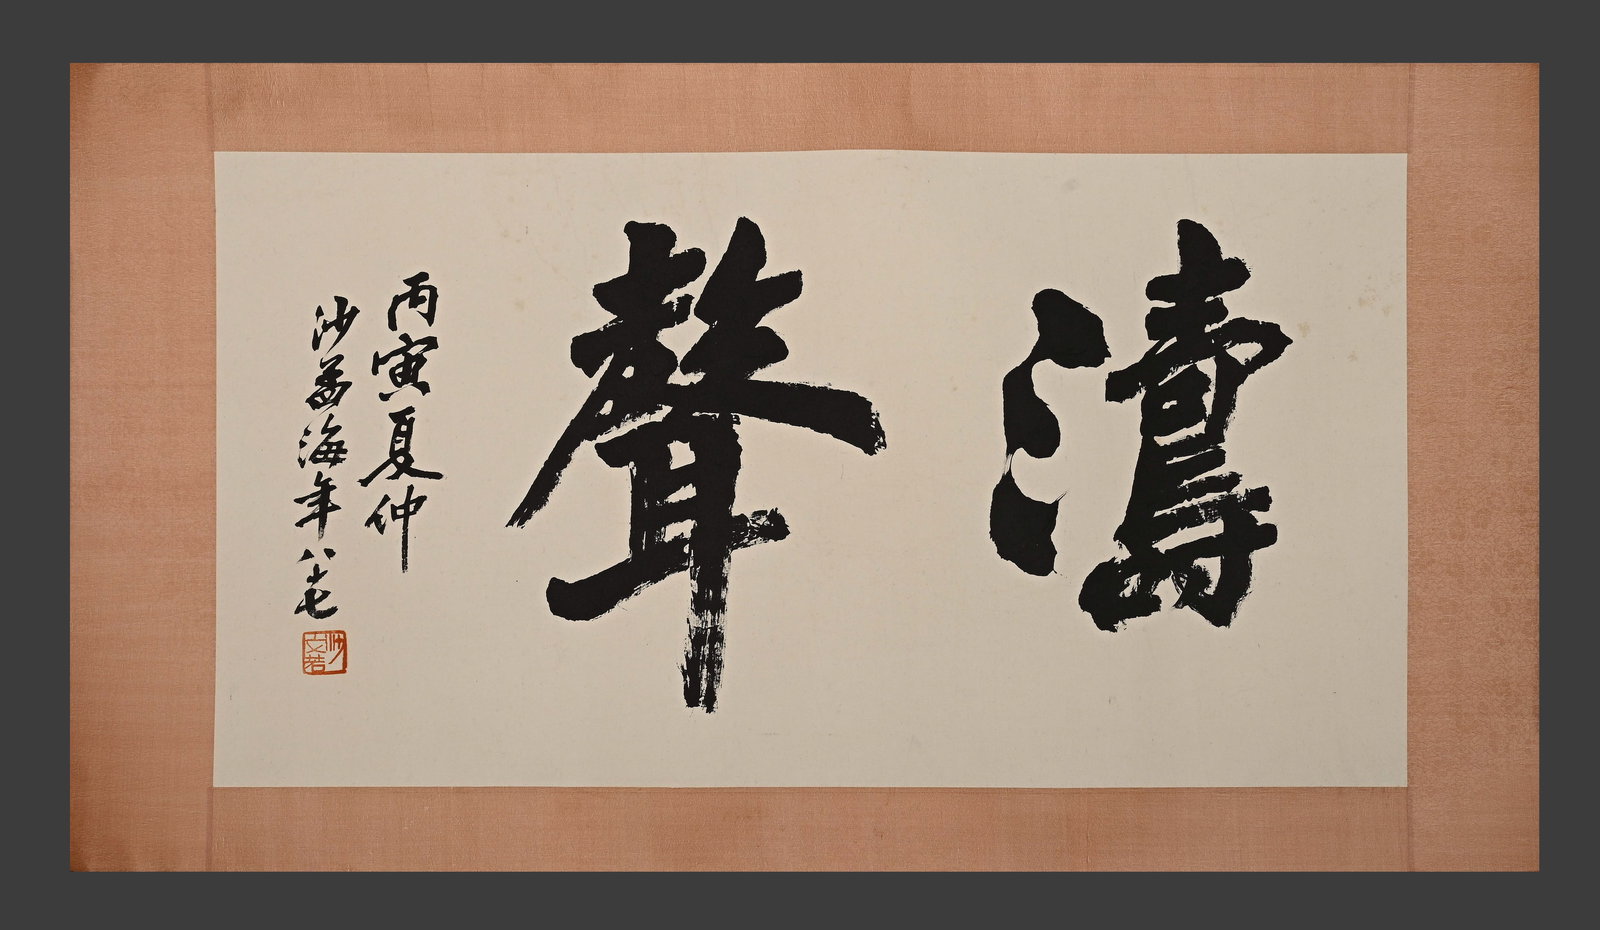 濤聲
丙寅夏仲
沙孟海年八十七
沙文若